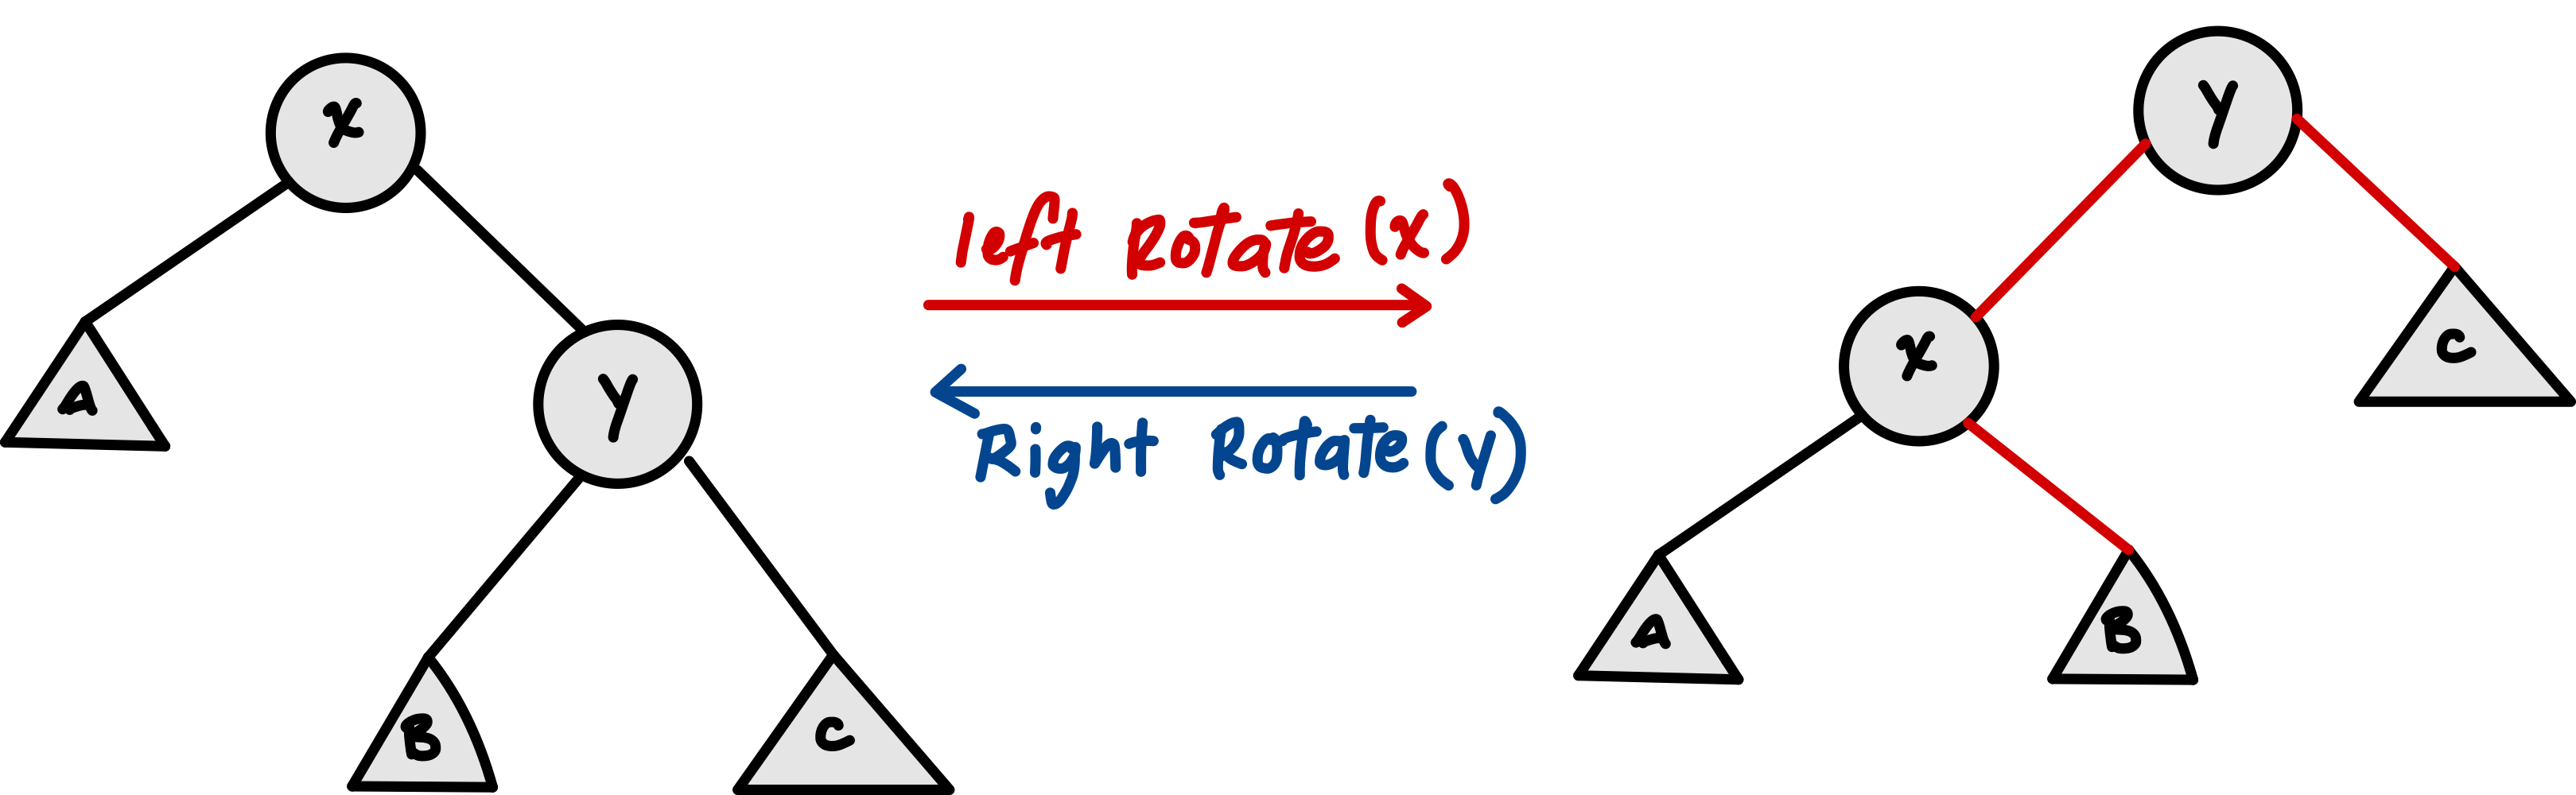 x
A
y
B
C
left Rotate (x)
Right Rotate (y)
y
x
C
A
B